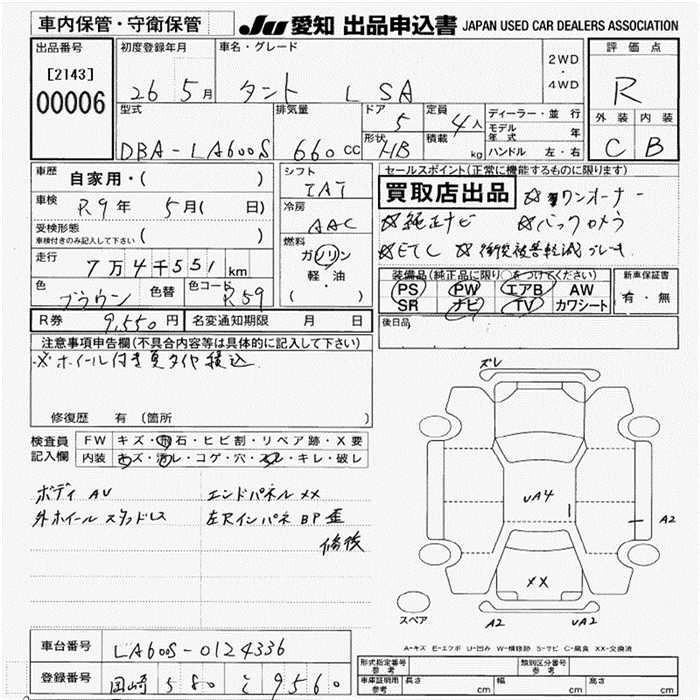 車内保管・守衛保管
JU 愛知 出品申込書 JAPAN USED CAR DEALERS ASSOCIATION
出品番号
[2143]
00006
初度登録年月
26 5月
車名・グレード
タント L SA
2WD
・
4WD
評価点
R
外装 内装
C B
型式
DBA-LA600S
排気量
660 cc
ドア
5
形状
HB
定員
4人
積載
kg
ディーラー・並行
モデル年式 年
ハンドル 左・右
車歴
自家用・( )
車検
R9年 5月( 日)
受検形態
車検付きのみ記入して下さい ( )
走行
7万4千551km
色
ブラウン
色替
色コード
R59
シフト
IAT
冷房
AAC
燃料
ガソリン
軽・油
( )
セールスポイント(正常に機能するものに限ります)
買取店出品 ☆ワンオーナー
☆純正ナビ ☆バックカメラ
☆ETC ☆衝突被害軽減ブレーキ
装備品(純正品に限り○をつけてください)
PS PW エアB AW
SR ナビ TV カワシート
新車保証書
有・無
後日品
R券 9,550円
名変通知期限 月 日
注意事項申告欄(不具合内容等は具体的に記入して下さい)
※ホイール付き夏タイヤ積込
修復歴 有(箇所 )
検査員記入欄
FW キズ・飛石・ヒビ割・リペア跡・X要
内装 キズ・汚レ・コゲ・穴・スレ・キレ・破レ
ボディ AU エンドパネル XX
外ホイール スタッドレス 左Rインパネ BP歪
修後
ズレ
UA4
A2
XX
A2 UA2
スペア
A-キズ E-エクボ U-凹み W-補修跡 S-サビ C-腐食 XX-交換済
車台番号 LA600S-0124336
登録番号 岡崎 580 と 9560
形式指定番号 参考
類別区分番号 参考
車庫証明用 参考 長さ cm 幅 cm 高さ cm